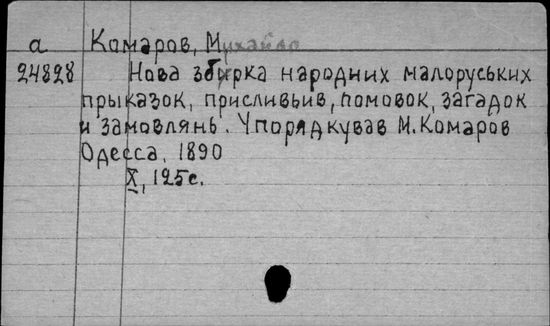 а Комаров, Михайло
24828 Нова збірка народних малоруських
прыказок, присливьив, помовок, загадок
и замовлянь. Упорядкував М. Комаров
Одесса, 1890
X, 125с.